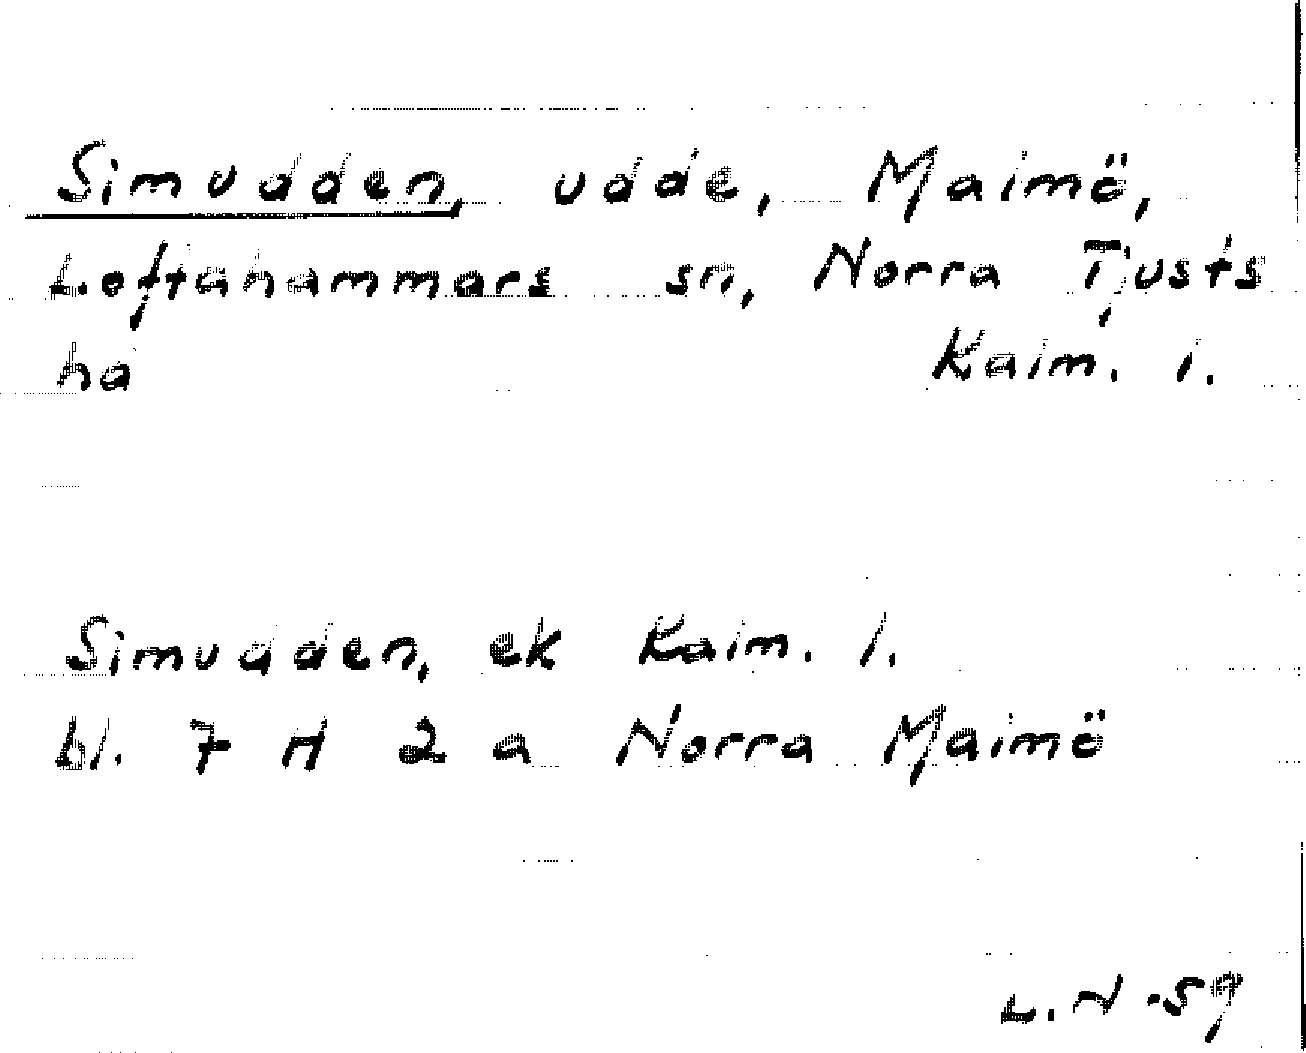 Simudden, udde, Maimö,
Loftahammars sn, Norra Tjusts
hd Kalm. l.
Simudden, ek Kalm. l.
bl. 7 H 2 a Norra Maimö
L. N -59